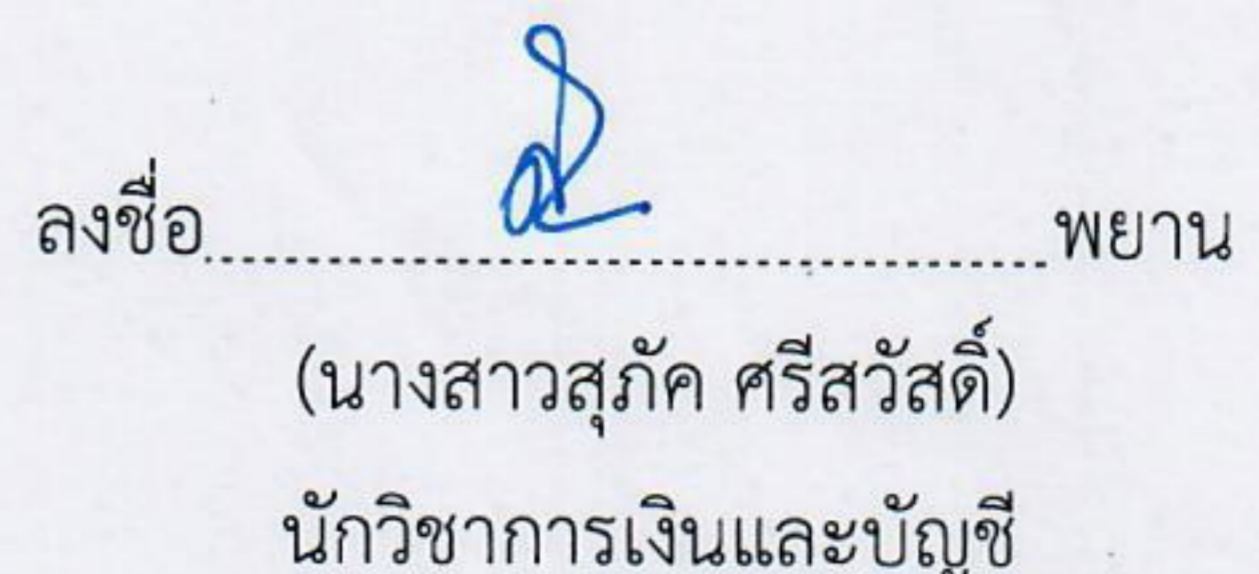 ลงชื่อ........................................................พยาน
(นางสาวสุภัค ศรีสวัสดิ์)
นักวิชาการเงินและบัญชี